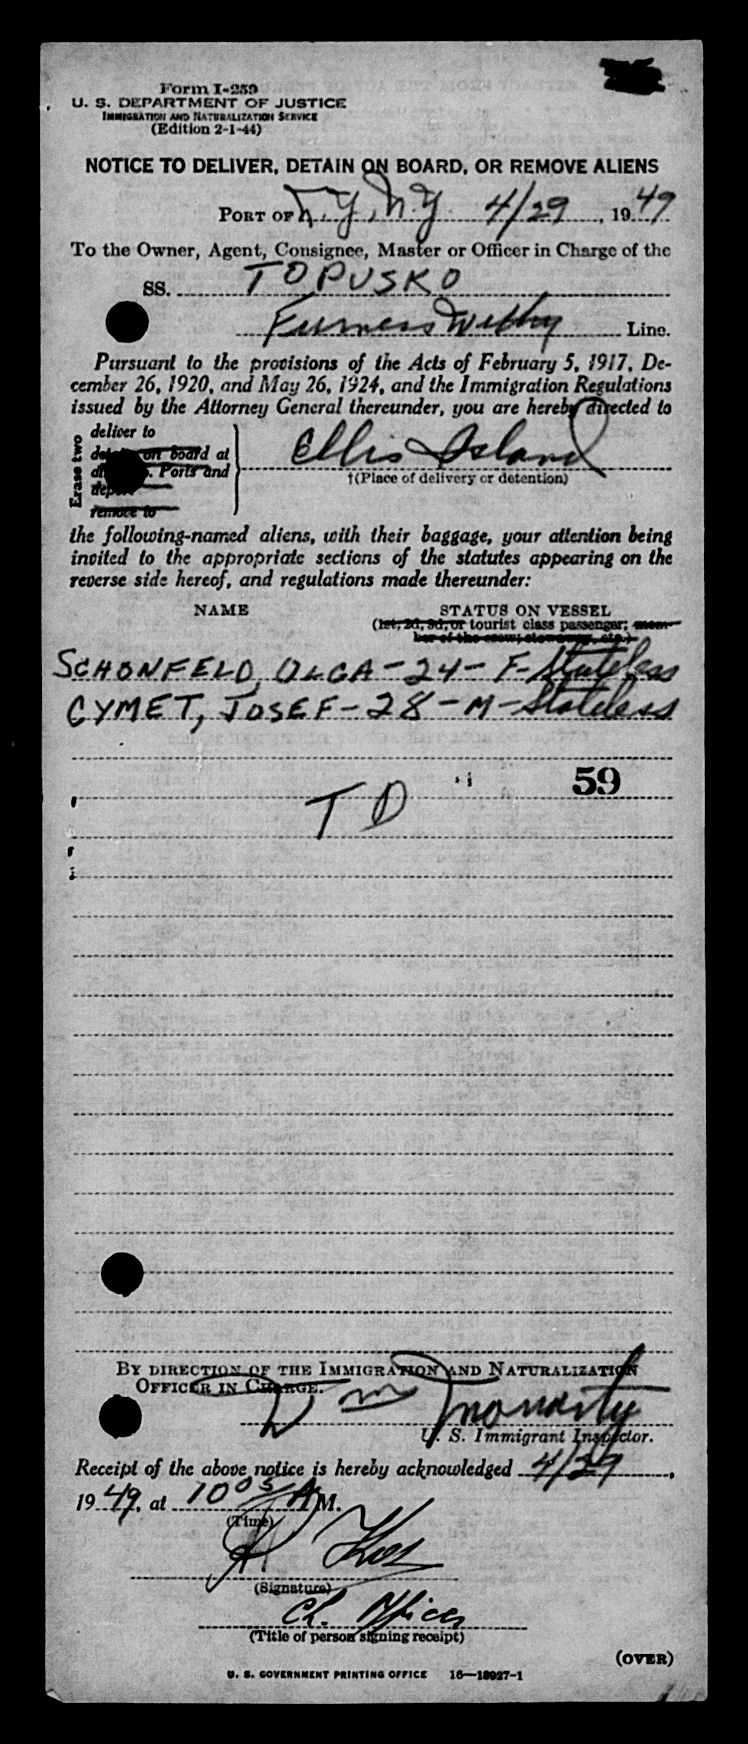 Form I-259
U. S. DEPARTMENT OF JUSTICE
IMMIGRATION AND NATURALIZATION SERVICE
(Edition 2-1-44)
NOTICE TO DELIVER, DETAIN ON BOARD, OR REMOVE ALIENS
PORT OF N.Y, N.Y. 4/29, 1949
To the Owner, Agent, Consignee, Master or Officer in Charge of the
SS. TOPUSKO
Furness Withy Line.
Pursuant to the provisions of the Acts of February 5, 1917, De-
cember 26, 1920, and May 26, 1924, and the Immigration Regulations
issued by the Attorney General thereunder, you are hereby directed to
Erase two
deliver to
on board at
Ports and
remove to
Ellis Island
†(Place of delivery or detention)
the following-named aliens, with their baggage, your attention being
invited to the appropriate sections of the statutes appearing on the
reverse side hereof, and regulations made thereunder:
NAME STATUS ON VESSEL
(1st, 2d, 3d, or tourist class passenger; mem-
ber of the crew; stowaway, etc.)
SCHONFELD, OLGA - 24 - F - Stateless
CYMET, JOSEF - 28 - M - Stateless
59
T D
BY DIRECTION OF THE IMMIGRATION AND NATURALIZATION
OFFICER IN CHARGE.
U. S. Immigrant Inspector.
Receipt of the above notice is hereby acknowledged 4/29,
1949, at 10 05 A M.
(Time)
(Signature)
Ch. Officer
(Title of person signing receipt)
(OVER)
U. S. GOVERNMENT PRINTING OFFICE 16—18927-1